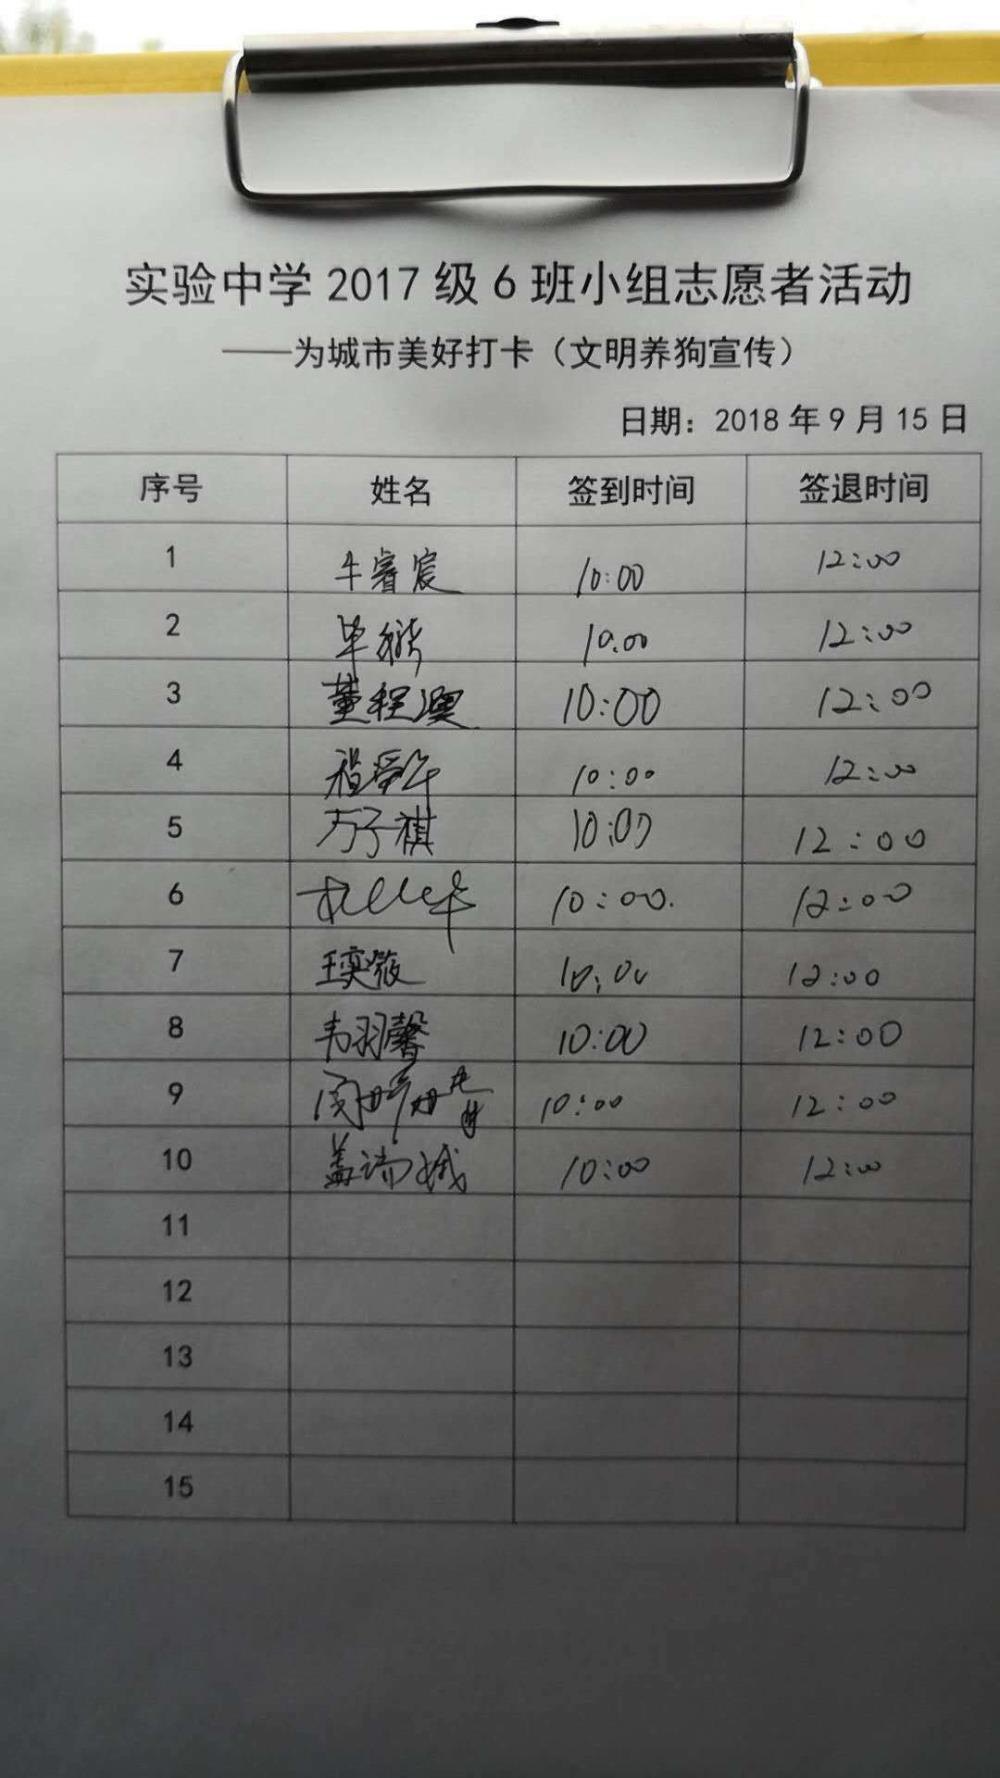 实验中学 2017 级 6 班小组志愿者活动
——为城市美好打卡（文明养狗宣传）
日期：2018 年 9 月 15 日
序号 姓名 签到时间 签退时间
1 牛睿宸 10:00 12:00
2 毕 10:00 12:00
3 董程澳 10:00 12:00
4 10:00 12:00
5 万子祺 10:00 12:00
6 10:00. 12:00
7 王奕薇 10:00 12:00
8 韦羽馨 10:00 12:00
9 10:00 12:00
10 盖瑞 10:00 12:00
11
12
13
14
15